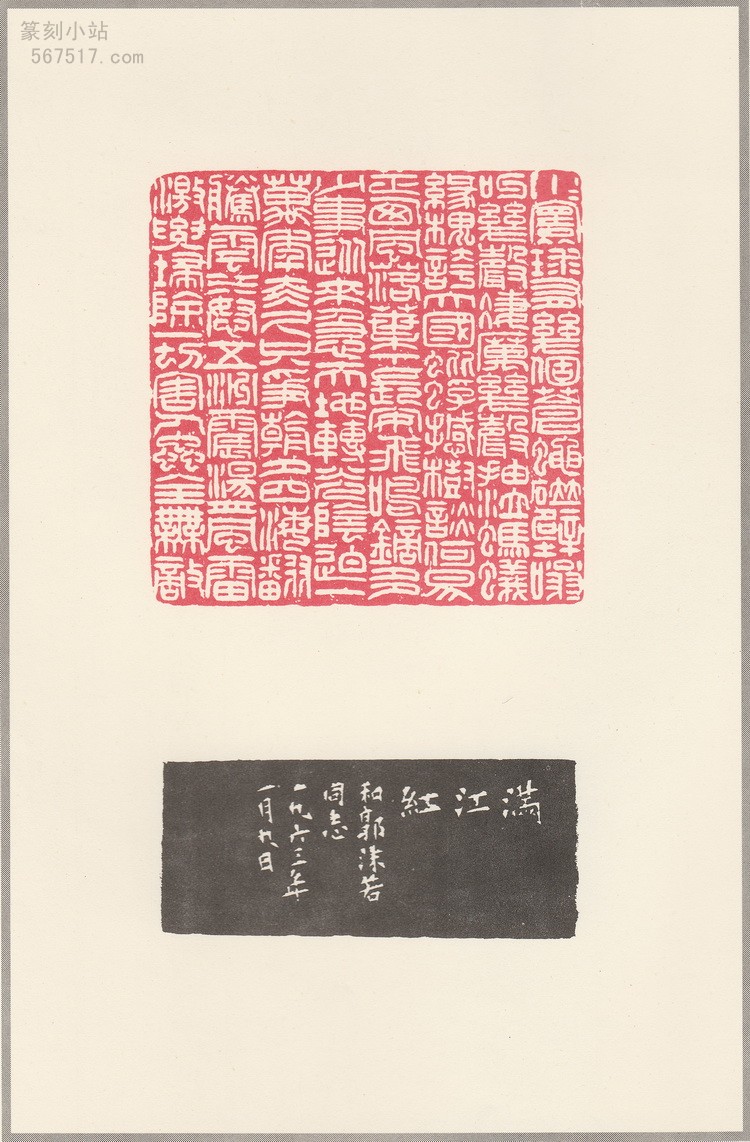 篆刻小站
567517.com
小小寰球有幾個蒼蠅碰壁嗡嗡
叫幾聲凄厲幾聲抽泣螞蟻
緣槐誇大國蚍蜉撼樹談何易
正西風落葉下長安飛鳴鏑多
少事從來急天地轉光陰迫一
萬年太久只爭朝夕四海翻
騰雲水怒五洲震蕩風雷
激要掃除一切害人蟲全無敵
滿江紅
和郭沫若
同志
一九六三年
一月九日